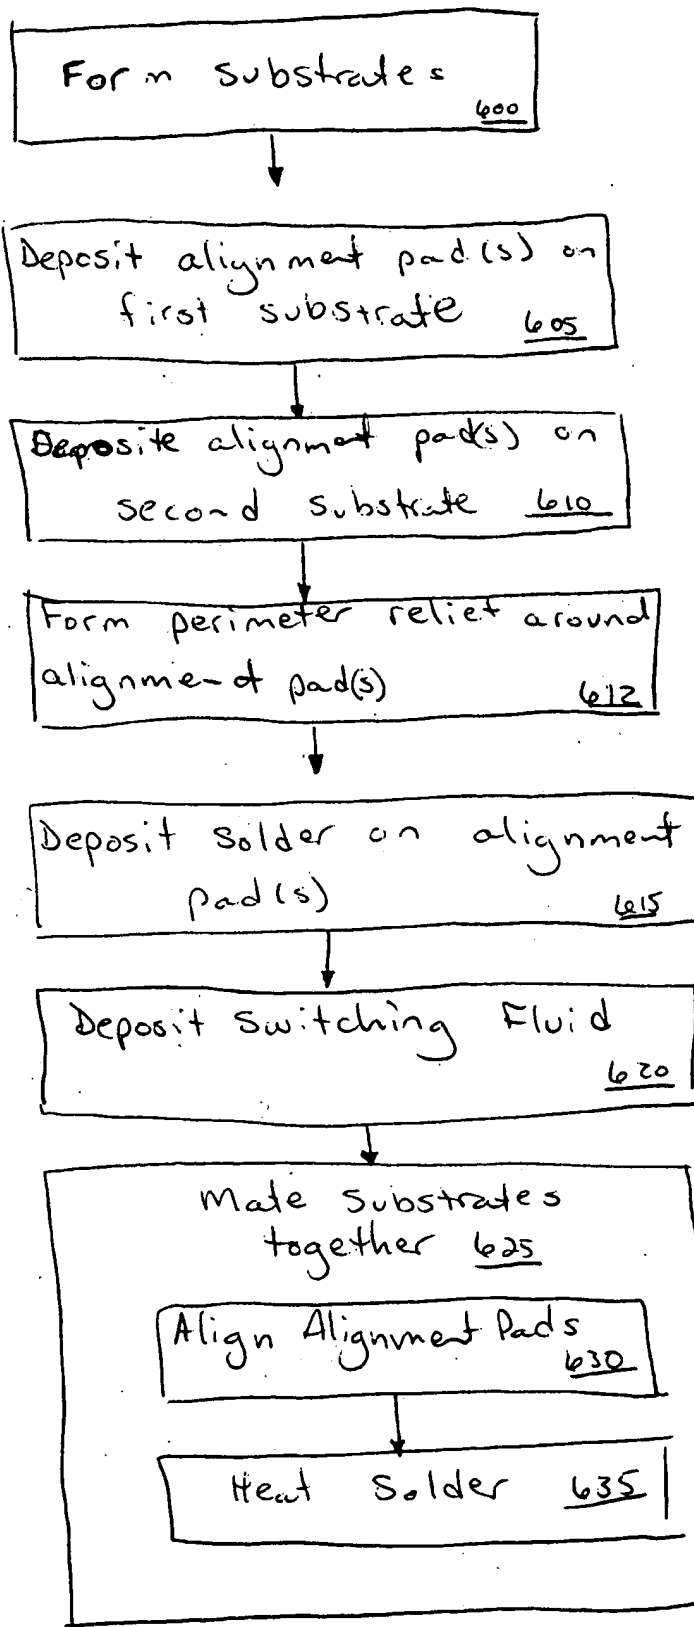 Form substrates
600
Deposit alignment pad(s) on
first substrate 605
Deposite alignment pad(s) on
second substrate 610
Form perimeter relief around
alignment pad(s) 612
Deposit solder on alignment
pad(s) 615
Deposit Switching Fluid
620
Mate substrates
together 625
Align Alignment Pads
630
Heat Solder 635